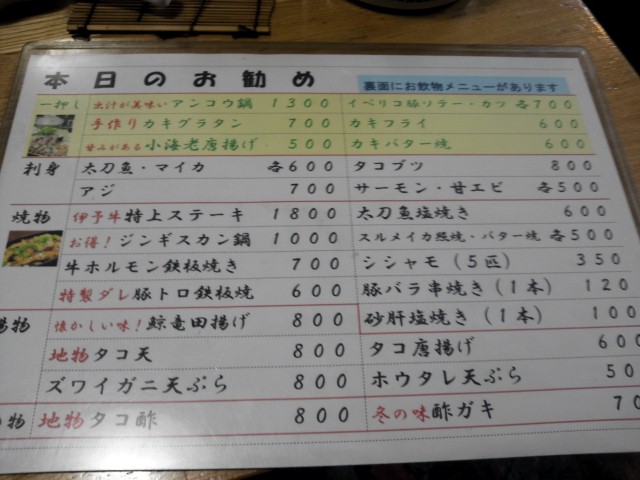 本日のお勧め
裏面にお飲物メニューがあります
一押し 出汁が美味いアンコウ鍋 1300 イベリコ豚ソテー・カツ 各700
手作りカキグラタン 700 カキフライ 600
甘みがある小海老唐揚げ 500 カキバター焼 600
刺身 太刀魚・マイカ 各600 タコブツ 800
アジ 700 サーモン・甘エビ 各500
焼物 伊予牛特上ステーキ 1800 太刀魚塩焼き 600
お得!ジンギスカン鍋 1000 スルメイカ照焼・バター焼 各500
牛ホルモン鉄板焼き 700 シシャモ(5匹) 350
特製ダレ豚トロ鉄板焼 600 豚バラ串焼き(1本) 120
揚物 懐かしい味!鯨竜田揚げ 800 砂肝塩焼き(1本) 100
地物タコ天 800 タコ唐揚げ 600
ズワイガニ天ぷら 800 ホウタレ天ぷら 50
物 地物タコ酢 800 冬の味酢ガキ 70